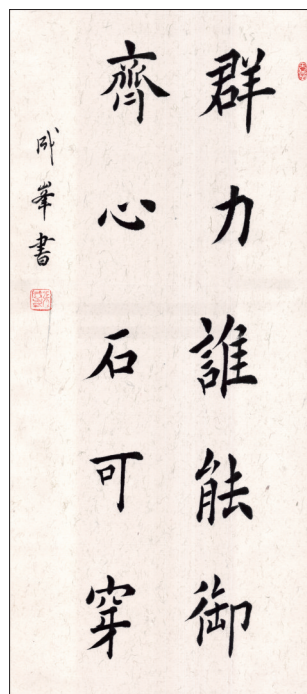 群力誰能御
齊心石可穿
成峯書